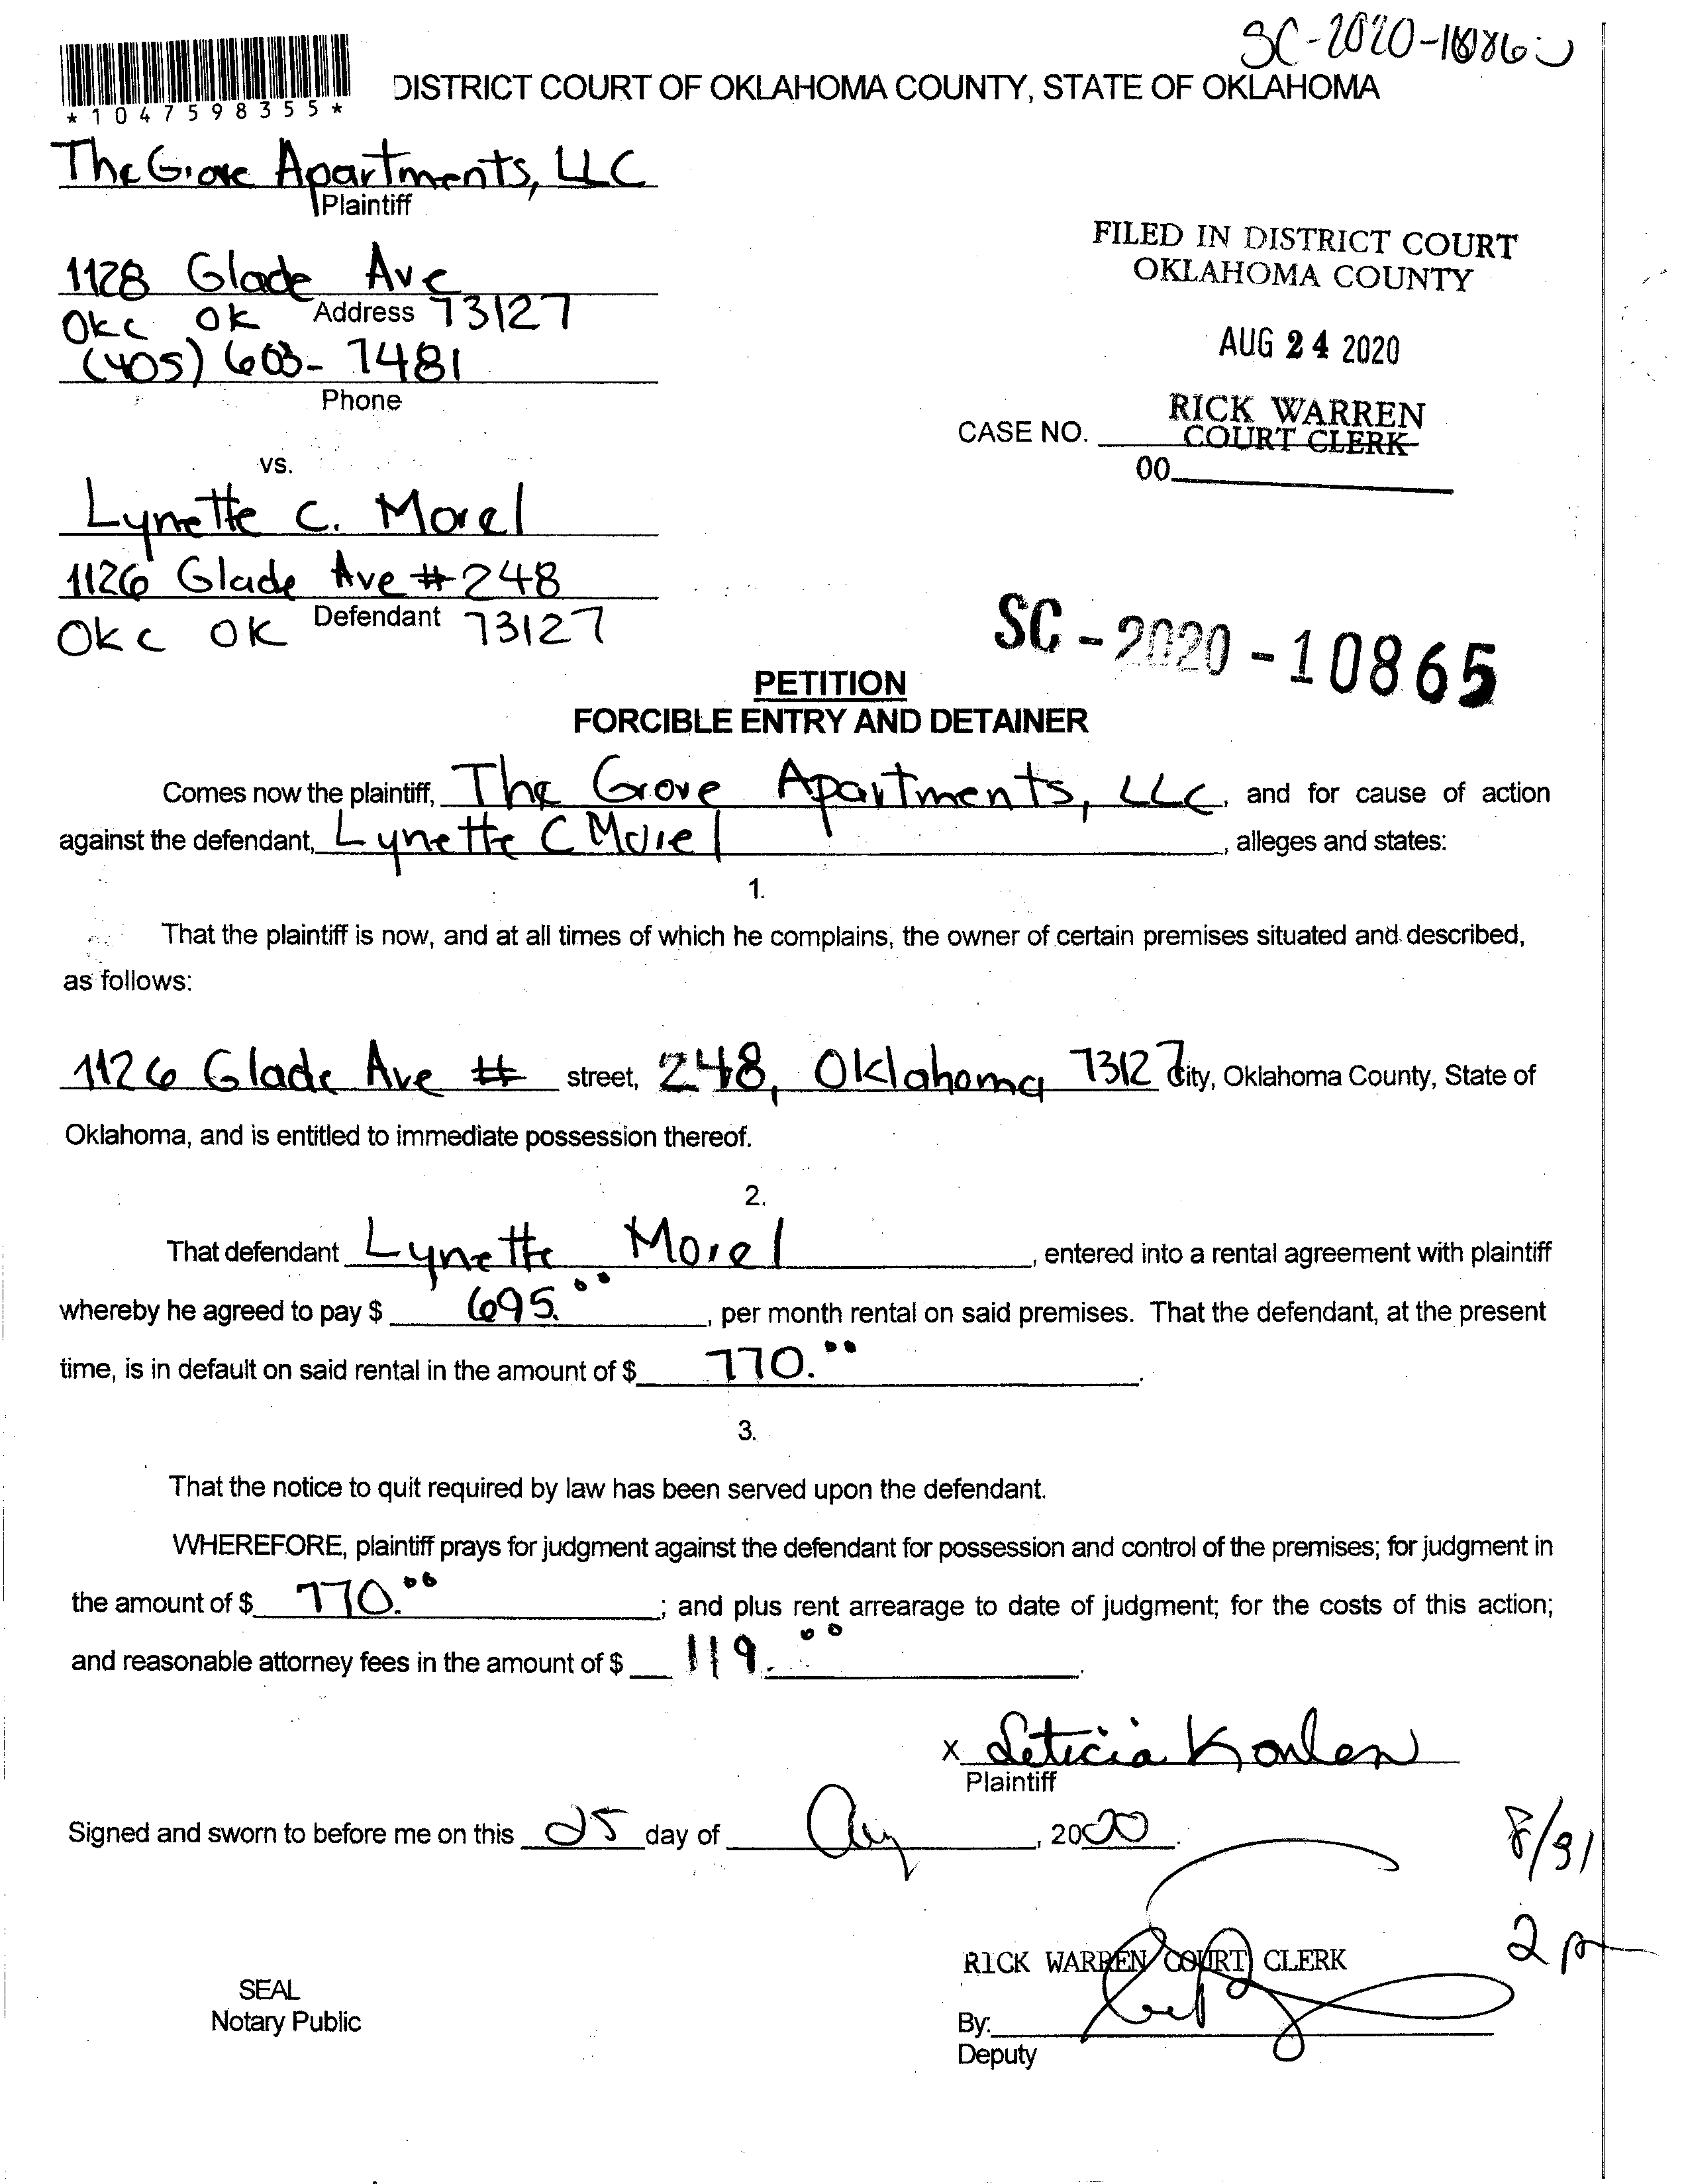 SC-2020-10865
*1047598355*
DISTRICT COURT OF OKLAHOMA COUNTY, STATE OF OKLAHOMA
The Grove Apartments, LLC
Plaintiff
FILED IN DISTRICT COURT
OKLAHOMA COUNTY
1128 Glade Ave
Address
OKC OK 73127
AUG 24 2020
(405) 603-7481
Phone
RICK WARREN
COURT CLERK
CASE NO.
00
vs.
Lynette C. Morel
1126 Glade Ave # 248
Defendant
OKC OK 73127
SC-2020-10865
PETITION
FORCIBLE ENTRY AND DETAINER
Comes now the plaintiff, The Grove Apartments, LLC, and for cause of action
against the defendant, Lynette C Morel, alleges and states:
1.
That the plaintiff is now, and at all times of which he complains, the owner of certain premises situated and described,
as follows:
1126 Glade Ave # street, 248, Oklahoma 73127 City, Oklahoma County, State of
Oklahoma, and is entitled to immediate possession thereof.
2.
That defendant Lynette Morel, entered into a rental agreement with plaintiff
whereby he agreed to pay $ 695.00, per month rental on said premises. That the defendant, at the present
time, is in default on said rental in the amount of $ 770.00.
3.
That the notice to quit required by law has been served upon the defendant.
WHEREFORE, plaintiff prays for judgment against the defendant for possession and control of the premises; for judgment in
the amount of $ 770.00; and plus rent arrearage to date of judgment; for the costs of this action;
and reasonable attorney fees in the amount of $ 119.00.
X Leticia
Plaintiff
Signed and sworn to before me on this 25 day of Aug, 2020.
8/31
2 p
RICK WARREN COURT CLERK
SEAL
Notary Public
By:
Deputy